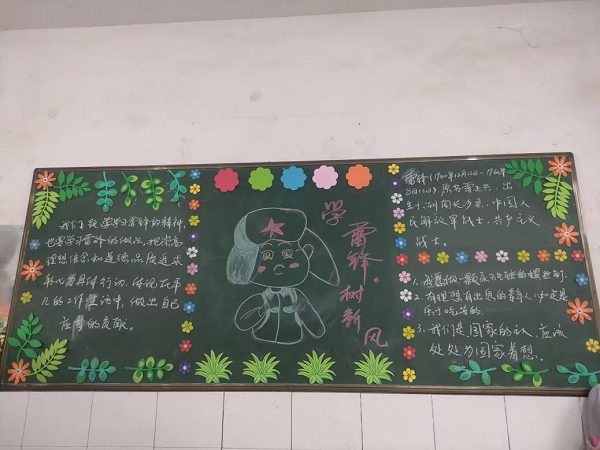 我们要学习雷锋的精神,
也要学习雷锋的做法,把崇高
理想信念和道德品质追求
转化为具体行动,体现在平
凡的工作生活中,做出自己
应有的贡献。
学雷锋·树新风
雷锋(1940年12月18日-1962年
8月15日),原名雷正兴,出
生于湖南长沙,中国人
民解放军战士,共产主义
战士。
1、我愿做一颗永不生锈的螺丝钉。
2、有理想有出息的青年人必定是
乐于吃苦的。
3、我们是国家的主人,应该
处处为国家着想。